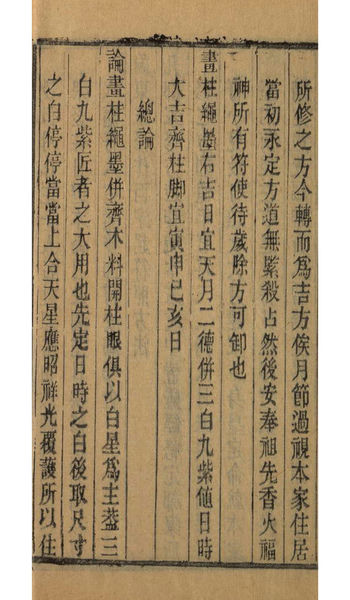 所修之方今轉而爲吉方俟月節過視本家住居
當初永定方道無緊殺占然後安奉祖先香火福
神所有符使待歲除方可卸也
畫柱繩墨右吉日宜天月二德併三白九紫値日時
大吉齊柱脚宜寅申巳亥日
總論
論畫柱繩墨併齊木料開柱眼俱以白星爲主葢三
白九紫匠者之大用也先定日時之白後取尺寸
之白停停當當上合天星應昭祥光覆護所以住